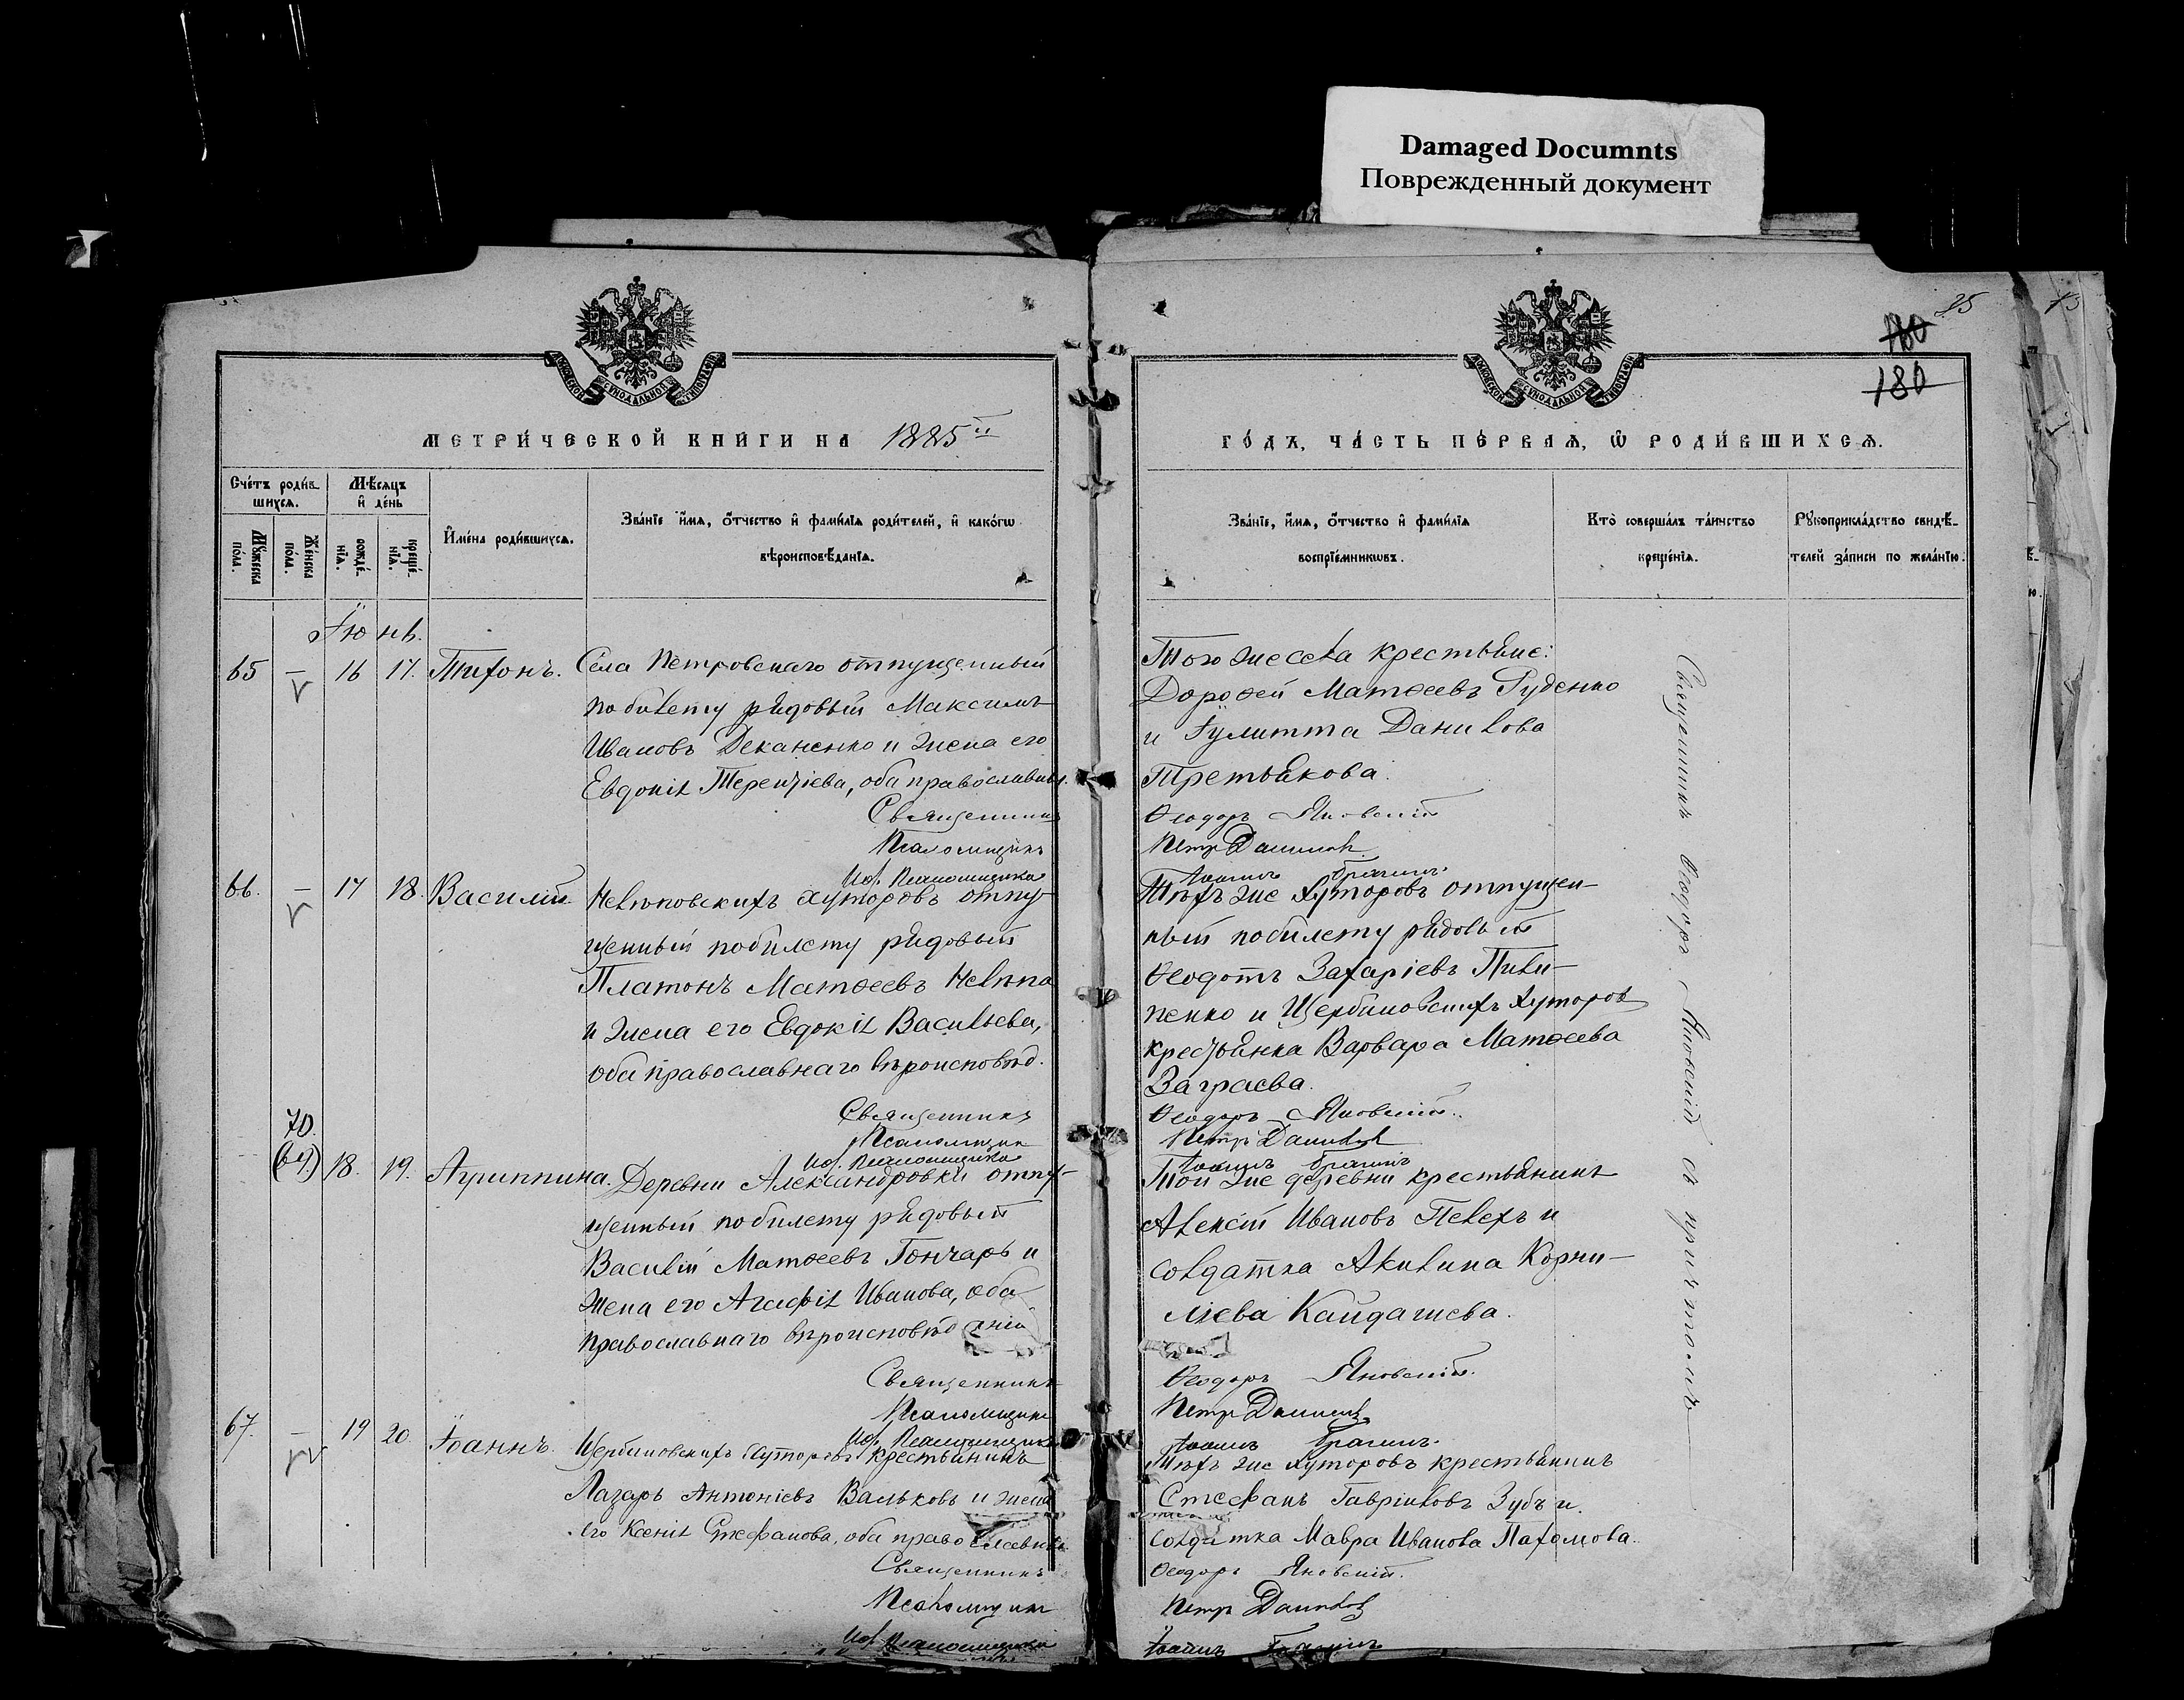 Damaged Documnts
Поврежденный документ
25
13
180
180
МОСКОВСКОЙ СѴНОДАЛЬНОЙ ТИПОГРАФІИ
МОСКОВСКОЙ СѴНОДАЛЬНОЙ ТИПОГРАФІИ
МЕТРИ́ЧЕСКОЙ КНИ́ГИ НА 1885й
ГО́ДЪ, ЧА́СТЬ ПЕ́РВАѦ, Ѽ РОДИ́ВШИХСѦ.
Счётъ роди́вшихсѧ.
Мѣ́сѧцъ и҆ де́нь
Мꙋ́жеска по́ла.
Же́нска по́ла.
рожде́нїѧ.
креще́нїѧ.
И҆мена̀ роди́вшихсѧ.
Зва́нїе и҆́мѧ, ѻ҆́тчество и҆ фами́лїѧ роди́телей, и҆ како́гѡ
вѣроисповѣ́данїѧ.
Зва́нїе, и҆́мѧ, ѻ҆́тчество и҆ фами́лїѧ
воспрїе́мникѡвъ.
Кто̀ соверша́лъ та́инство
креще́нїѧ.
Рꙋкоприкла́дство свидѣ́-
телей за́писи по жела́нїю.
Іюнь.
65 — 16 17. Тихонъ. Села Петровскаго отпущенный
по билету рядовый Максимъ
Ивановъ Деканенко и жена его
Евдокія Терентіева, оба православн.
Священникъ
Псаломщикъ
Иоf. Псаломщика
Того же села крестьяне:
Дорофей Матѳеевъ Руденко
и Іулитта Данилова
Третьякова.
Ѳеодоръ Яновскій
Петръ Даниловъ
Іоаннъ Брагинъ.
66. — 17 18. Василій Нелѣповскихъ хуторовъ отпу-
щенный по билету рядовый
Платонъ Матѳеевъ Нелѣпа
и жена его Евдокія Васильева,
оба православнаго вѣроисповѣд.
Священникъ
Псаломщик
Иоf. Псаломщика
Тѣхъ же хуторовъ отпущен-
ный по билету рядовый
Ѳеодотъ Захаріевъ Пили-
пенко и Щербиновскихъ хуторов
крестьянка Варвара Матѳеева
Заграева.
Ѳеодоръ Яновскій.
Петръ Даниловъ
Іоаннъ Брагинъ
70.
(69.) 18. 19. Агриппина. Деревни Александровки отпу-
щенный по билету рядовый
Василій Матѳеевъ Гончаръ и
жена его Агафія Иванова, оба
православнаго вѣроисповѣданія
Священникъ
Псаломщикъ
Иоf. Псаломщика
Той же деревни крестьянинъ
Алексій Ивановъ Пелехъ и
солдатка Акилина Корни-
ліева Кайдашева.
Ѳеодоръ Яновскій.
Петръ Даниловъ
Іоаннъ Брагинъ.
67. — 19 20. Іоаннъ. Щербиновскихъ хуторовъ крестьянинъ
Лазарь Антоніевъ Вальковъ и жена
его Ксенія Стефанова, оба православн.
Священникъ
Псаломщик
Иоf. Псаломщика
Тѣхъ же хуторовъ крестьянинъ
Стефанъ Гавріиловъ Зубъ и
солдатка Мавра Иванова Пахомова.
Ѳеодоръ Яновскій.
Петръ Даниловъ
Іоаннъ Брагинъ
Священникъ Ѳеодоръ Яновскій съ причтомъ